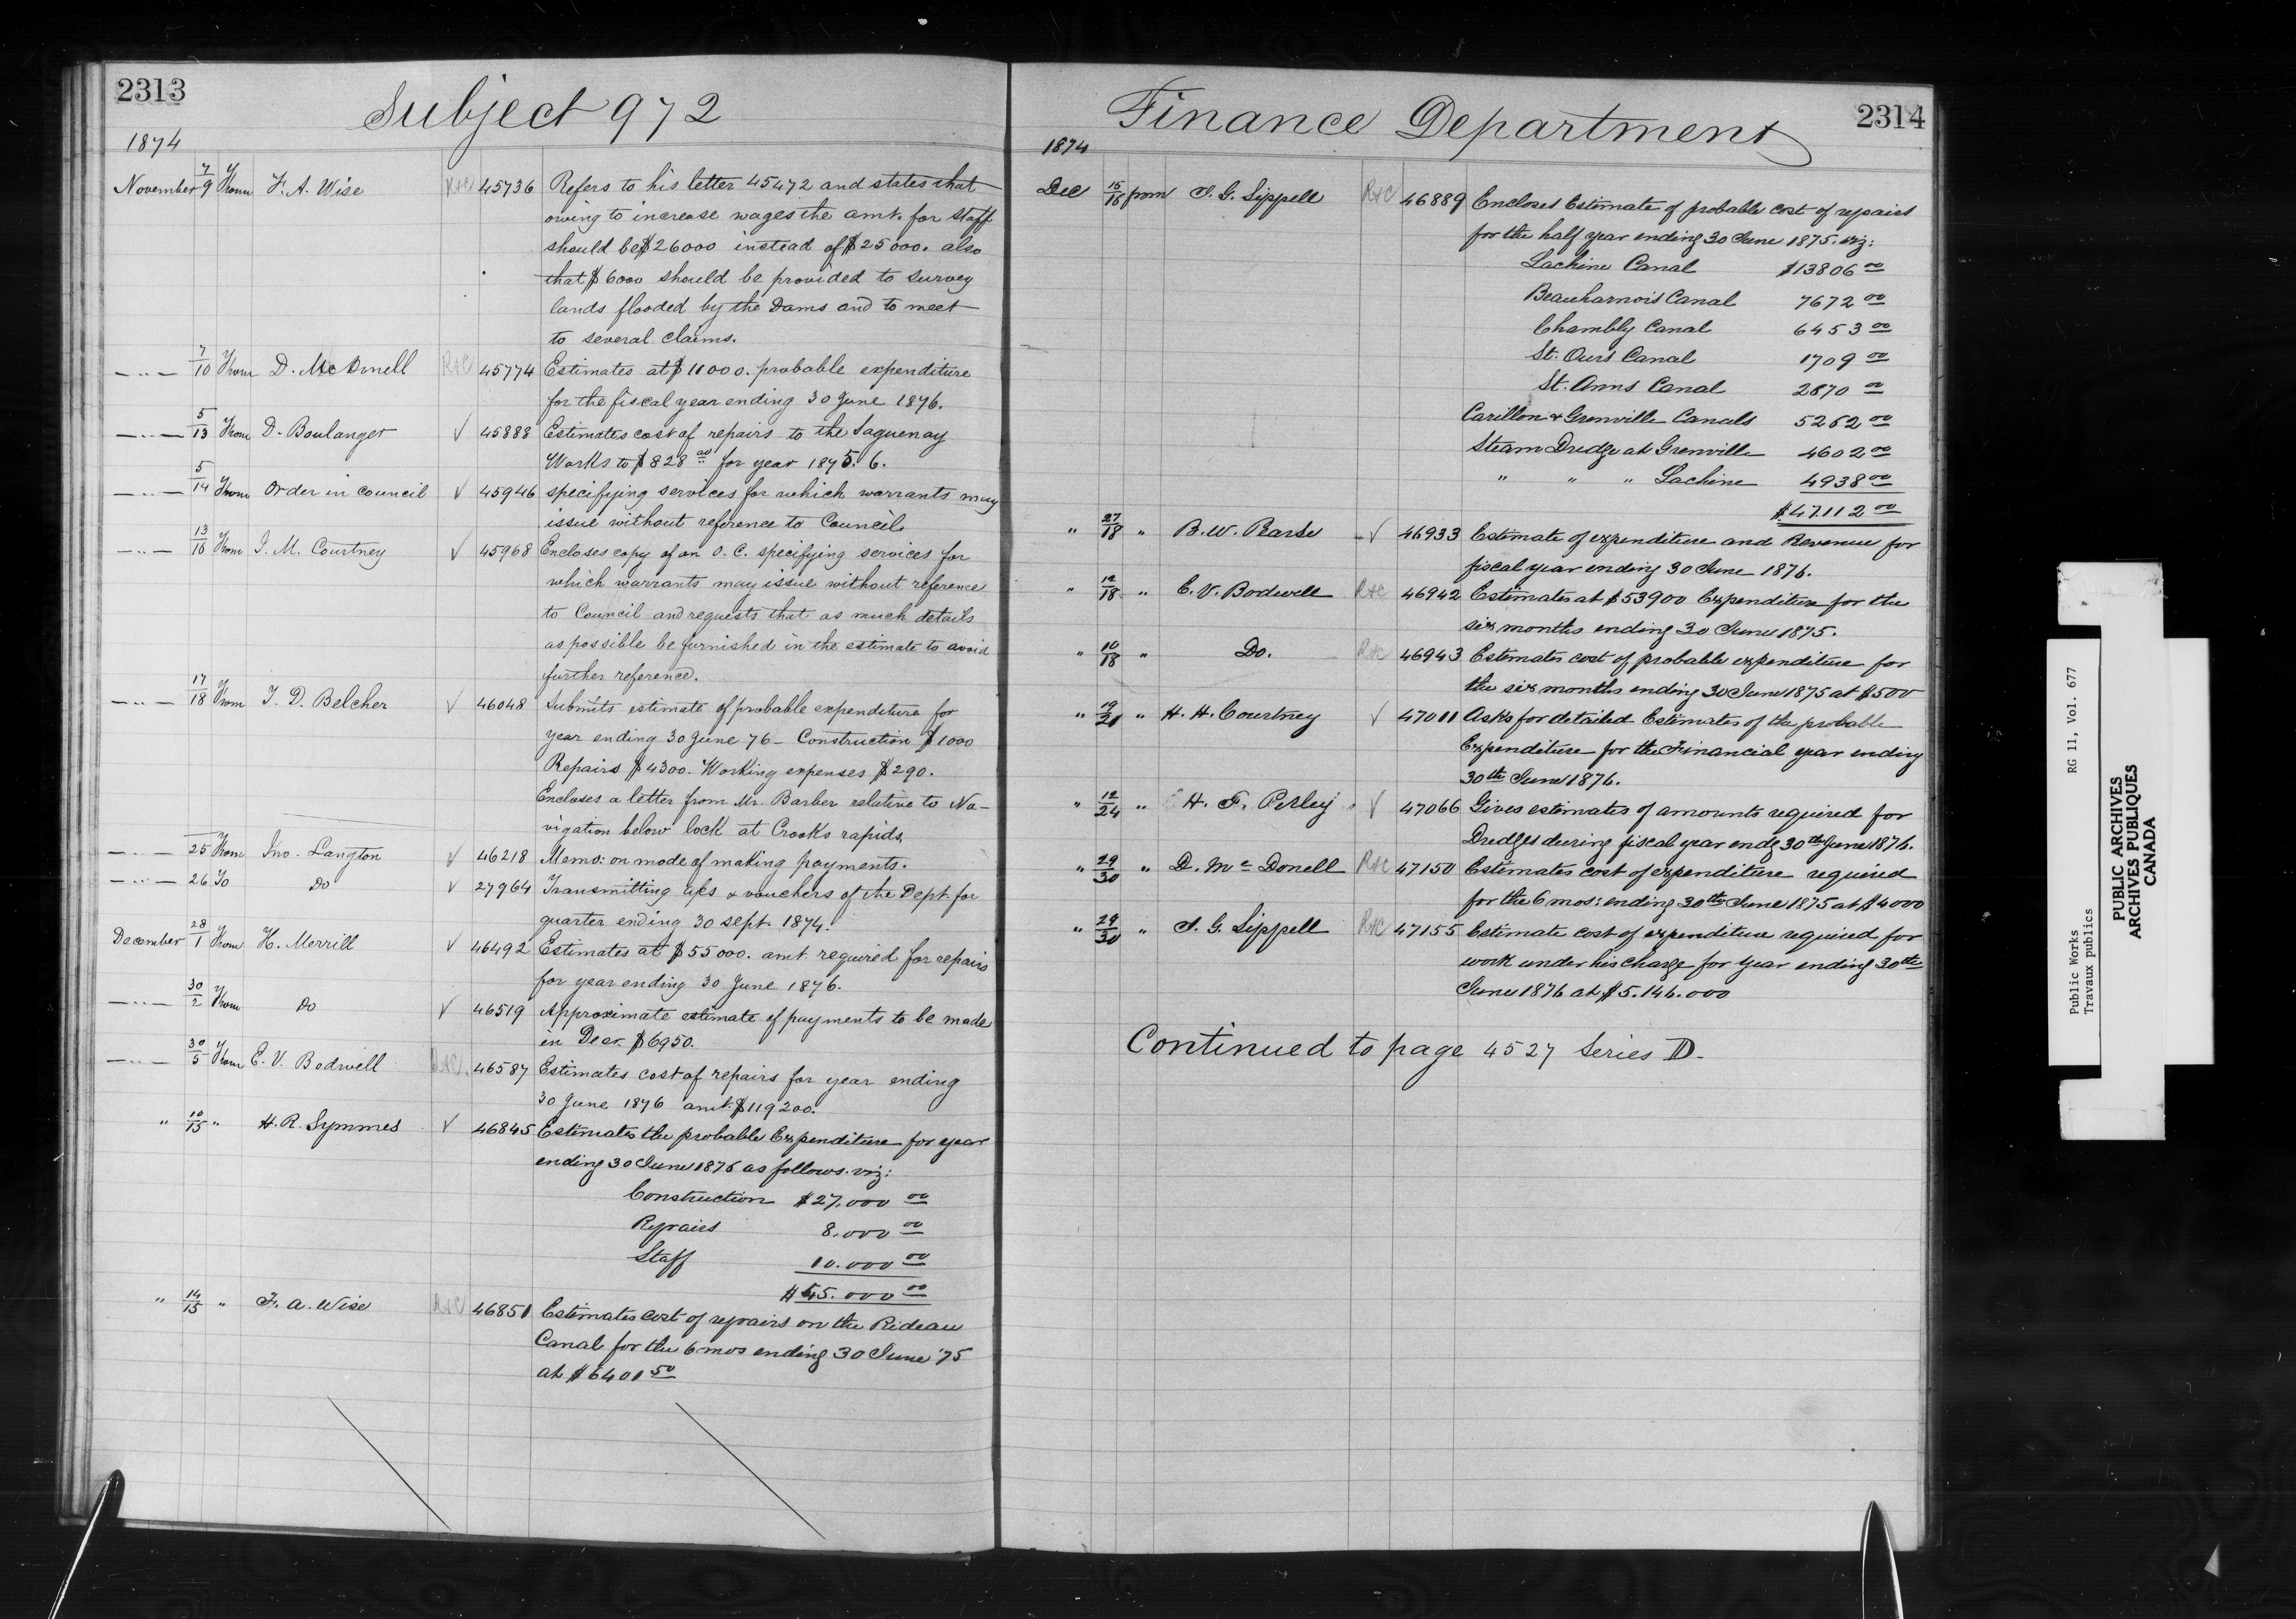 2313
Subject 972
1874
November 7/9 From F. A. Wise R+C 45736 Refers to his letter 45472 and states that
owing to increase wages the amt. for staff
should be $26000 instead of $25000. also
that $6000 should be provided to survey
lands flooded by the Dams and to meet
to several claims.
— " — 7/10 From D. McDonell R+C 45774 Estimates at $11000. probable expenditure
for the fiscal year ending 30 June 1876.
— " — 5/13 From D. Boulanger √ 45888 Estimates cost of repairs to the Saguenay
Works to $828 00 for year 1875. 6.
— " — 5/14 From Order in Council √ 45946 specifying services for which warrants may
issue without reference to Council.
— " — 13/16 From J. M. Courtney √ 45968 Encloses copy of an O. C. specifying services for
which warrants may issue without reference
to Council and requests that as much details
as possible be furnished in the estimate to avoid
further reference.
— " — 17/18 From T. D. Belcher √ 46048 Submits estimate of probable expenditure for
year ending 30 June 76 – Construction $1000
Repairs $4300. Working expenses $290.
Encloses a letter from Mr. Barber relative to Na-
vigation below lock at Crooks rapids.
— " — 25 From Jno. Langton √ 46218 Memo: on mode of making payments.
— " — 26 To Do √ 27964 Transmitting a/cs & vouchers of the Dept. for
quarter ending 30 Sept. 1874.
December 28/1 From H. Merrill √ 46492 Estimates at $55000. amt required for repairs
for year ending 30 June 1876.
— " — 30/2 From Do √ 46519 Approximate estimate of payments to be made
in Decr. $6950.
— " — 30/5 From E. V. Bodwell R+C. 46587 Estimates cost of repairs for year ending
30 June 1876 amt. $119200.
" 10/15 " H. R. Symmes √ 46845 Estimates the probable Expenditure for year
ending 30 June 1876 as follows. viz:
Construction $27.000 00
Repairs 8.000 00
Staff 10.000 00
$45.000 00
" 14/15 " F. A. Wise R+C 46851 Estimates cost of repairs on the Rideau
Canal for the 6 mos ending 30 June '75
at $6401 50
Finance Department
2314
1874
Dec 15/16 from J. G. Sippell R+C 46889 Encloses Estimate of probable cost of repairs
for the half year ending 30 June 1875. viz:
Lachine Canal $13806 00
Beauharnois Canal 7672 00
Chambly Canal 6453 00
St. Ours Canal 1709 00
St. Anns Canal 2870 00
Carillon & Grenville Canals 5262 00
Steam Dredge at Grenville 4602 00
" " " Lachine 4938 00
$47.112 00
" 27/18 " B. W. Rarse √ 46933 Estimate of expenditure and Revenue for
fiscal year ending 30 June 1876.
" 12/18 " E. V. Bodwell R+C 46942 Estimates at $53900 Expenditure for the
six months ending 30 June 1875.
" 10/18 " Do. R+C 46943 Estimates cost of probable expenditure for
the six months ending 30 June 1875 at $500
" 19/21 " H. H. Courtney √ 47011 Asks for detailed Estimates of the probable
Expenditure for the Financial year ending
30th June 1876.
" 12/24 " H. F. Perley √ 47066 Gives estimates of amounts required for
Dredges during fiscal year endg 30th June 1876.
" 29/30 " D. McDonell R+C 47150 Estimates cost of expenditure required
for the 6 mos: ending 30th June 1875 at $4000
" 29/30 " J. G. Sippell R+C 47155 Estimate cost of expenditure required for
work under his charge for year ending 30th
June 1876 at $5.146.000
Continued to page 4527 Series D.
Public Works RG 11, Vol. 677
Travaux publics
PUBLIC ARCHIVES
ARCHIVES PUBLIQUES
CANADA